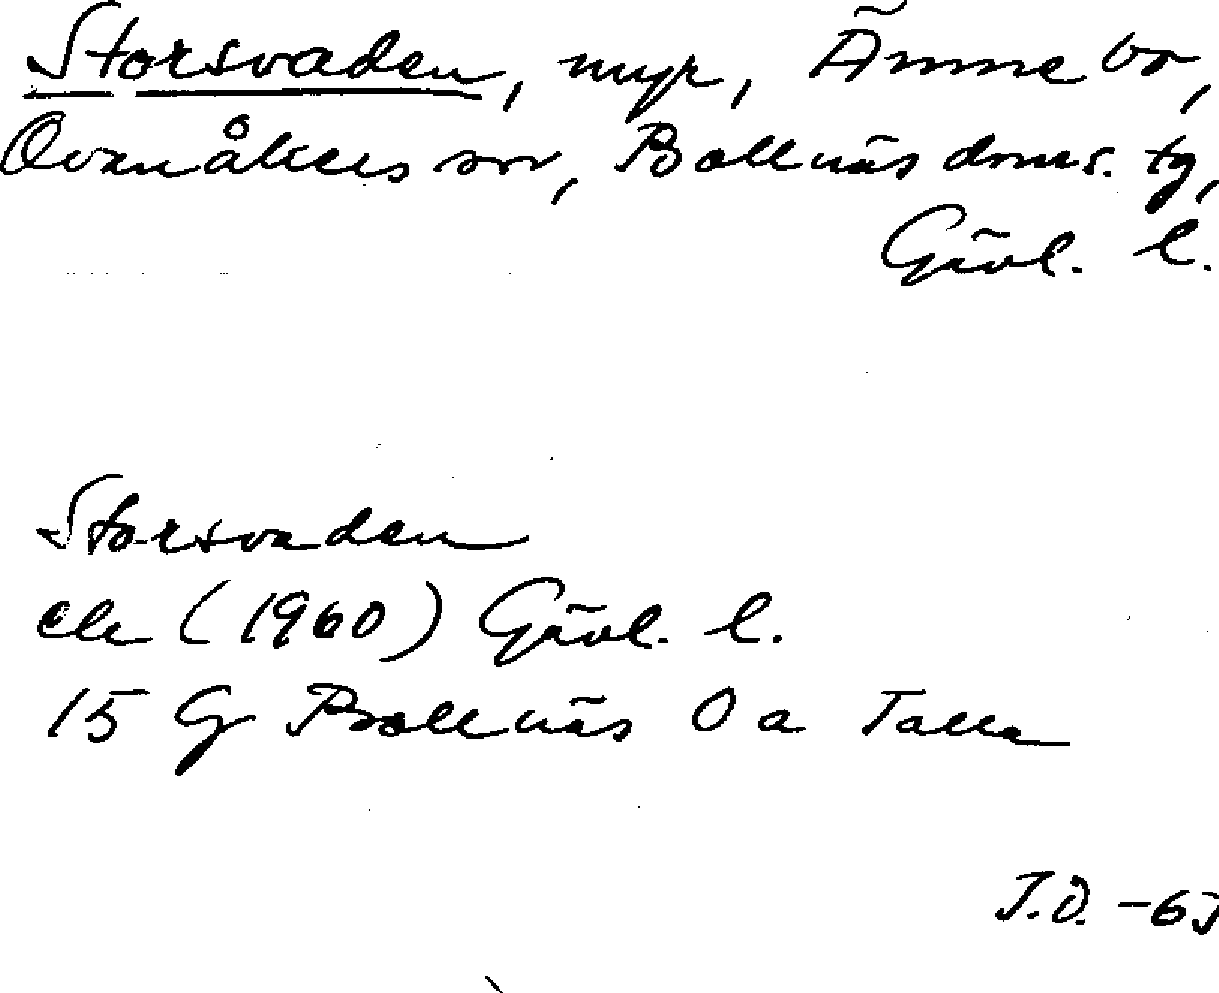 Storsvaden, myr, Ämnebo,
Ovanåkers sn, Bollnäs doms. tg,
Gävl. l.
Storsvaden
ek (1960) Gävl. l.
15 G Bollnäs 0 a Talla
J.Ö. -65